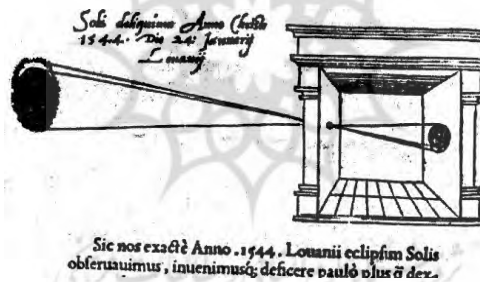 Solis deliquium Anno Christi
1544. Die 24. Januarij
Louanij
Sic nos exactè Anno .1544. Louanii eclipsim Solis
obseruauimus, inuenimusq; deficere paulò plus q̃ dex-